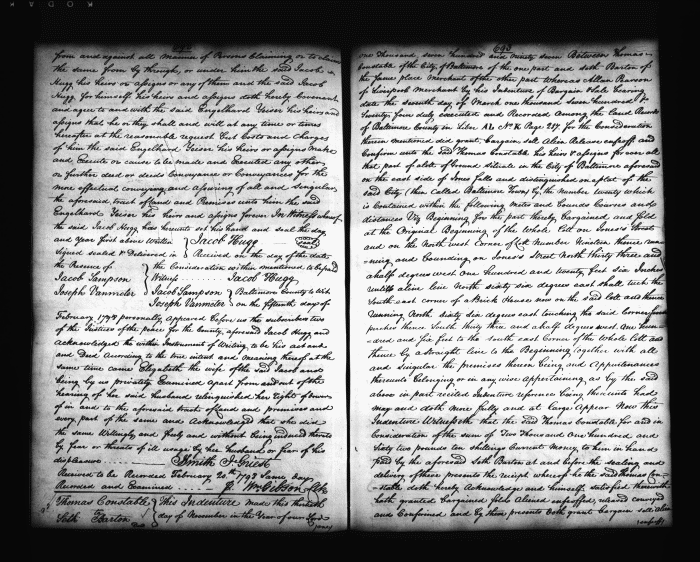 from and against all manner of Persons Claiming or to claim
the same from by through, or under him the said Jacob
Hugg his heirs or assigns or any of them and the said Jacob
Hugg for himself his heirs and assigns doth hereby covenant
and agree to and with the said Engelhard Yeiser his heirs and
assigns that he or they shall and will at any time or times
hereafter at the reasonable request Cost and Charges
of him the said Engelhard Yeiser his heirs or assigns make
and Execute or cause to be made and Executed any other
or further deed or deeds Conveyance or Conveyances for the
more effectual conveying and assuring of all and singular
the aforesaid tract of land and Premises unto him the said
Engelhard Yeiser his heirs and assigns forever In Witness whereof
the said Jacob Hugg has hereunto set his hand and seal the day
and Year first above Written Jacob Hugg seal
Signed sealed & Delivered in Received on the day of the date
the Presence of the Consideration within mentioned to be paid
Jacob Sampson Witness Jacob Hugg
Joseph Vanmeter Jacob Sampson Baltimore County to Wit
Joseph Vanmeter on the fifteenth day of
February 1798 personally appeared before us the subscribers two
of the Justices of the peace for the County aforesaid Jacob Hugg and
Acknowledged the within Instrument of Writing to be his act and
and Deed According to the true intent and meaning thereof at the
same time came Elizabeth the wife of the said Jacob and
being by us privately Examined Apart from and out of the
hearing of her said husband relinquished her right of dower
of in and to the aforesaid tract of land and premises and
every part of the same and Acknowledged that she did
the same Willingly and freely and without being induced thereto
by fear or threats of ill usage by her husband or fear of his
displeasure
Received to be Recorded February 20 1798 Same day
Recorded and Examined Wm Gibson Clk
Thomas Constable This Indenture made this thirtieth
Seth Barton day of November in the Year of our Lord
(one)
693
one thousand seven hundred and ninety seven Between Thomas
Constable of the City of Baltimore of the one part and Seth Barton of
the same place Merchant of the other part Whereas Allan
of Liverpool Merchant by his Indenture of Bargain & Sale bearing
date the seventh day of March one thousand seven hundred &
Twenty four duly executed and Recorded Among the Land Records
of Baltimore County in Liber AL No K Page 217 for the Consideration
therein mentioned did grant, Bargain, sell Alien Release enfeoff and
Confirm unto the said Thomas Constable his heirs & assigns for ever all
that part of a lot of Ground situate in the City of Baltimore aforesaid
on the east side of Jones falls and distinguished on a plat of the
said City (then Called Baltimore Town) by the Number twenty which
is Contained within the following metes and bounds Courses and
distances Viz Beginning for the part hereby Bargained and sold
at the Original Beginning of the whole Lot on Jones's Street
and on the North west Corner of Lot Number Nineteen thence
and bounding on Jones's Street North thirty three and
a half degrees west One hundred and twenty feet six Inches
until a line North sixty six degrees east shall touch the
South east corner of a Brick House now on the said lott and thence
Running North sixty six degrees east touching the said Corner
perches thence South thirty three and a half degrees west One hun
dred and six feet to the South east Corner of the whole Lott and
thence by a straight line to the Beginning Together with all
and singular the premises thereon being and Appurtenances
thereunto Belonging or in any wise Appertaining as by the said
above in part recited Indenture reference being thereunto had
may and doth more fully and at large Appear Now this
Indenture Witnesseth that the said Thomas Constable for and in
Consideration of the sum of Two Thousand One hundred and
Sixty two pounds ten shillings Current Money to him in hand
paid by the aforesaid Seth Barton at and before the sealing and
delivery of these presents the receipt whereof he the said Thomas Con
stable doth hereby Acknowledge and himself satisfied therewith
hath granted Bargained sold Aliened enfeoffed, released conveyed
and Confirmed and by these presents doth grant Bargain sell Alien
(enfeoff)